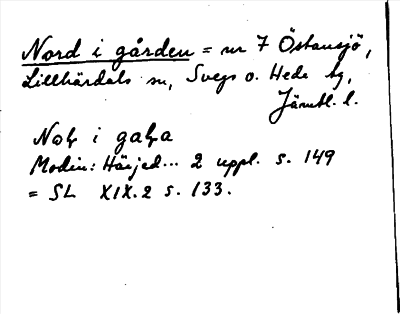 Nord i gården = nr 7 Östansjö,
Lillhärdals sn, Svegs o. Hede tg,
Jämtl. l.
i gaḷa
Modin: Härjed... 2 uppl. s. 149
= SL XIX.2 s. 133.